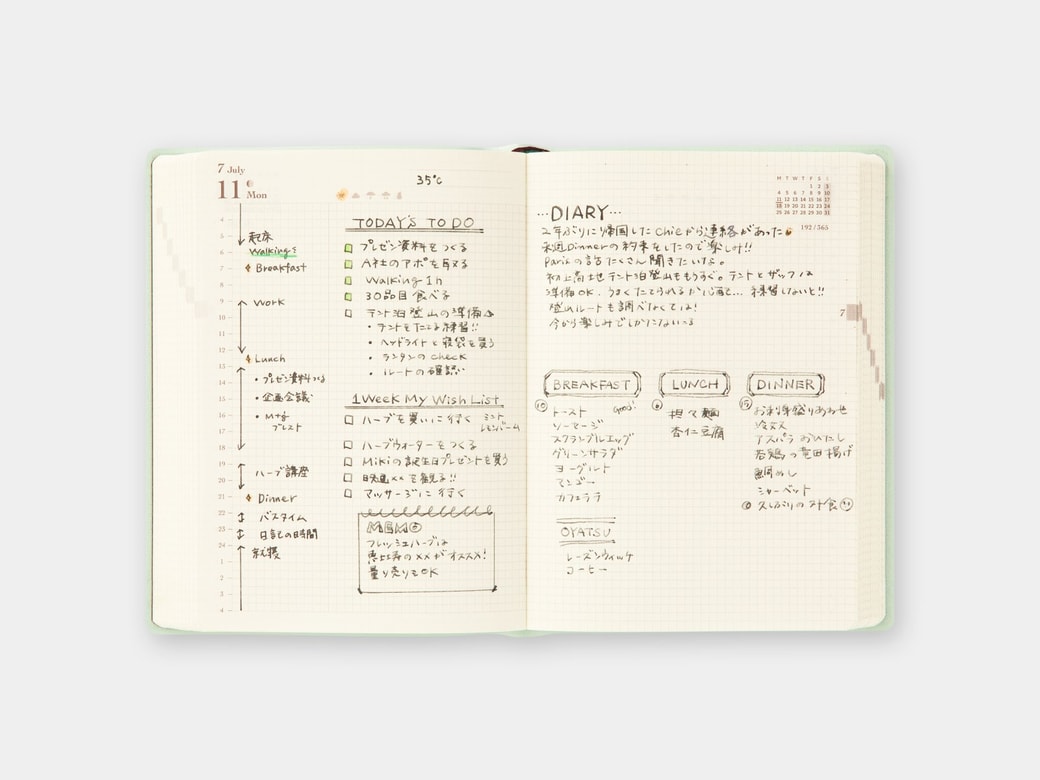 7 July
11 Mon
35℃
4
5
起床
6 Walking
7 Breakfast
8
9 Work
10
11
12
13 Lunch
・プレゼン資料つくる
14
・企画会議
15
16 ・Mtg
ブレスト
17
18
19 ハーブ講座
20
21 Dinner
22 バスタイム
23 日記の時間
24 就寝
1
2
3
4
TODAY'S TO DO
プレゼン資料をつくる
A社のアポを取る
Walking 1h
30品目食べる
テント泊登山の準備
・テントをたてる練習!!
・ヘッドライトと寝袋を買う
・ランタンのcheck
・ルートの確認
1Week My Wish List
ハーブを買いに行く ミント レモンバーム
ハーブウォーターをつくる
Mikiの誕生日プレゼントを買う
映画××を観る!!
マッサージに行く
MEMO
フレッシュハーブは
恵比寿の××がオススメ!
量り売りもOK
M T W T F S S
1 2 3
4 5 6 7 8 9 10
11 12 13 14 15 16 17
18 19 20 21 22 23 24
25 26 27 28 29 30 31
192/365
…DIARY…
2年ぶりに帰国したChieから連絡があった
来週Dinnerの約束をしたので楽しみ!!
Parisの話たくさん聞きたいな。
初上高地テント泊登山ももうすぐ。テントとザックは
準備OK.うまくたてられるか心配… 練習しないと!!
登山ルートも調べなくては!
今から楽しみでしかたない
7
BREAKFAST
⑩ トースト good!
ソーセージ
スクランブルエッグ
グリーンサラダ
ヨーグルト
マンゴー
カフェラテ
LUNCH
担々麺
杏仁豆腐
DINNER
⑮ お刺身盛りあわせ
アスパラおひたし
若鶏の竜田揚げ
鯛めし
シャーベット
久しぶりの外食
OYATSU
レーズンウィッチ
コーヒー